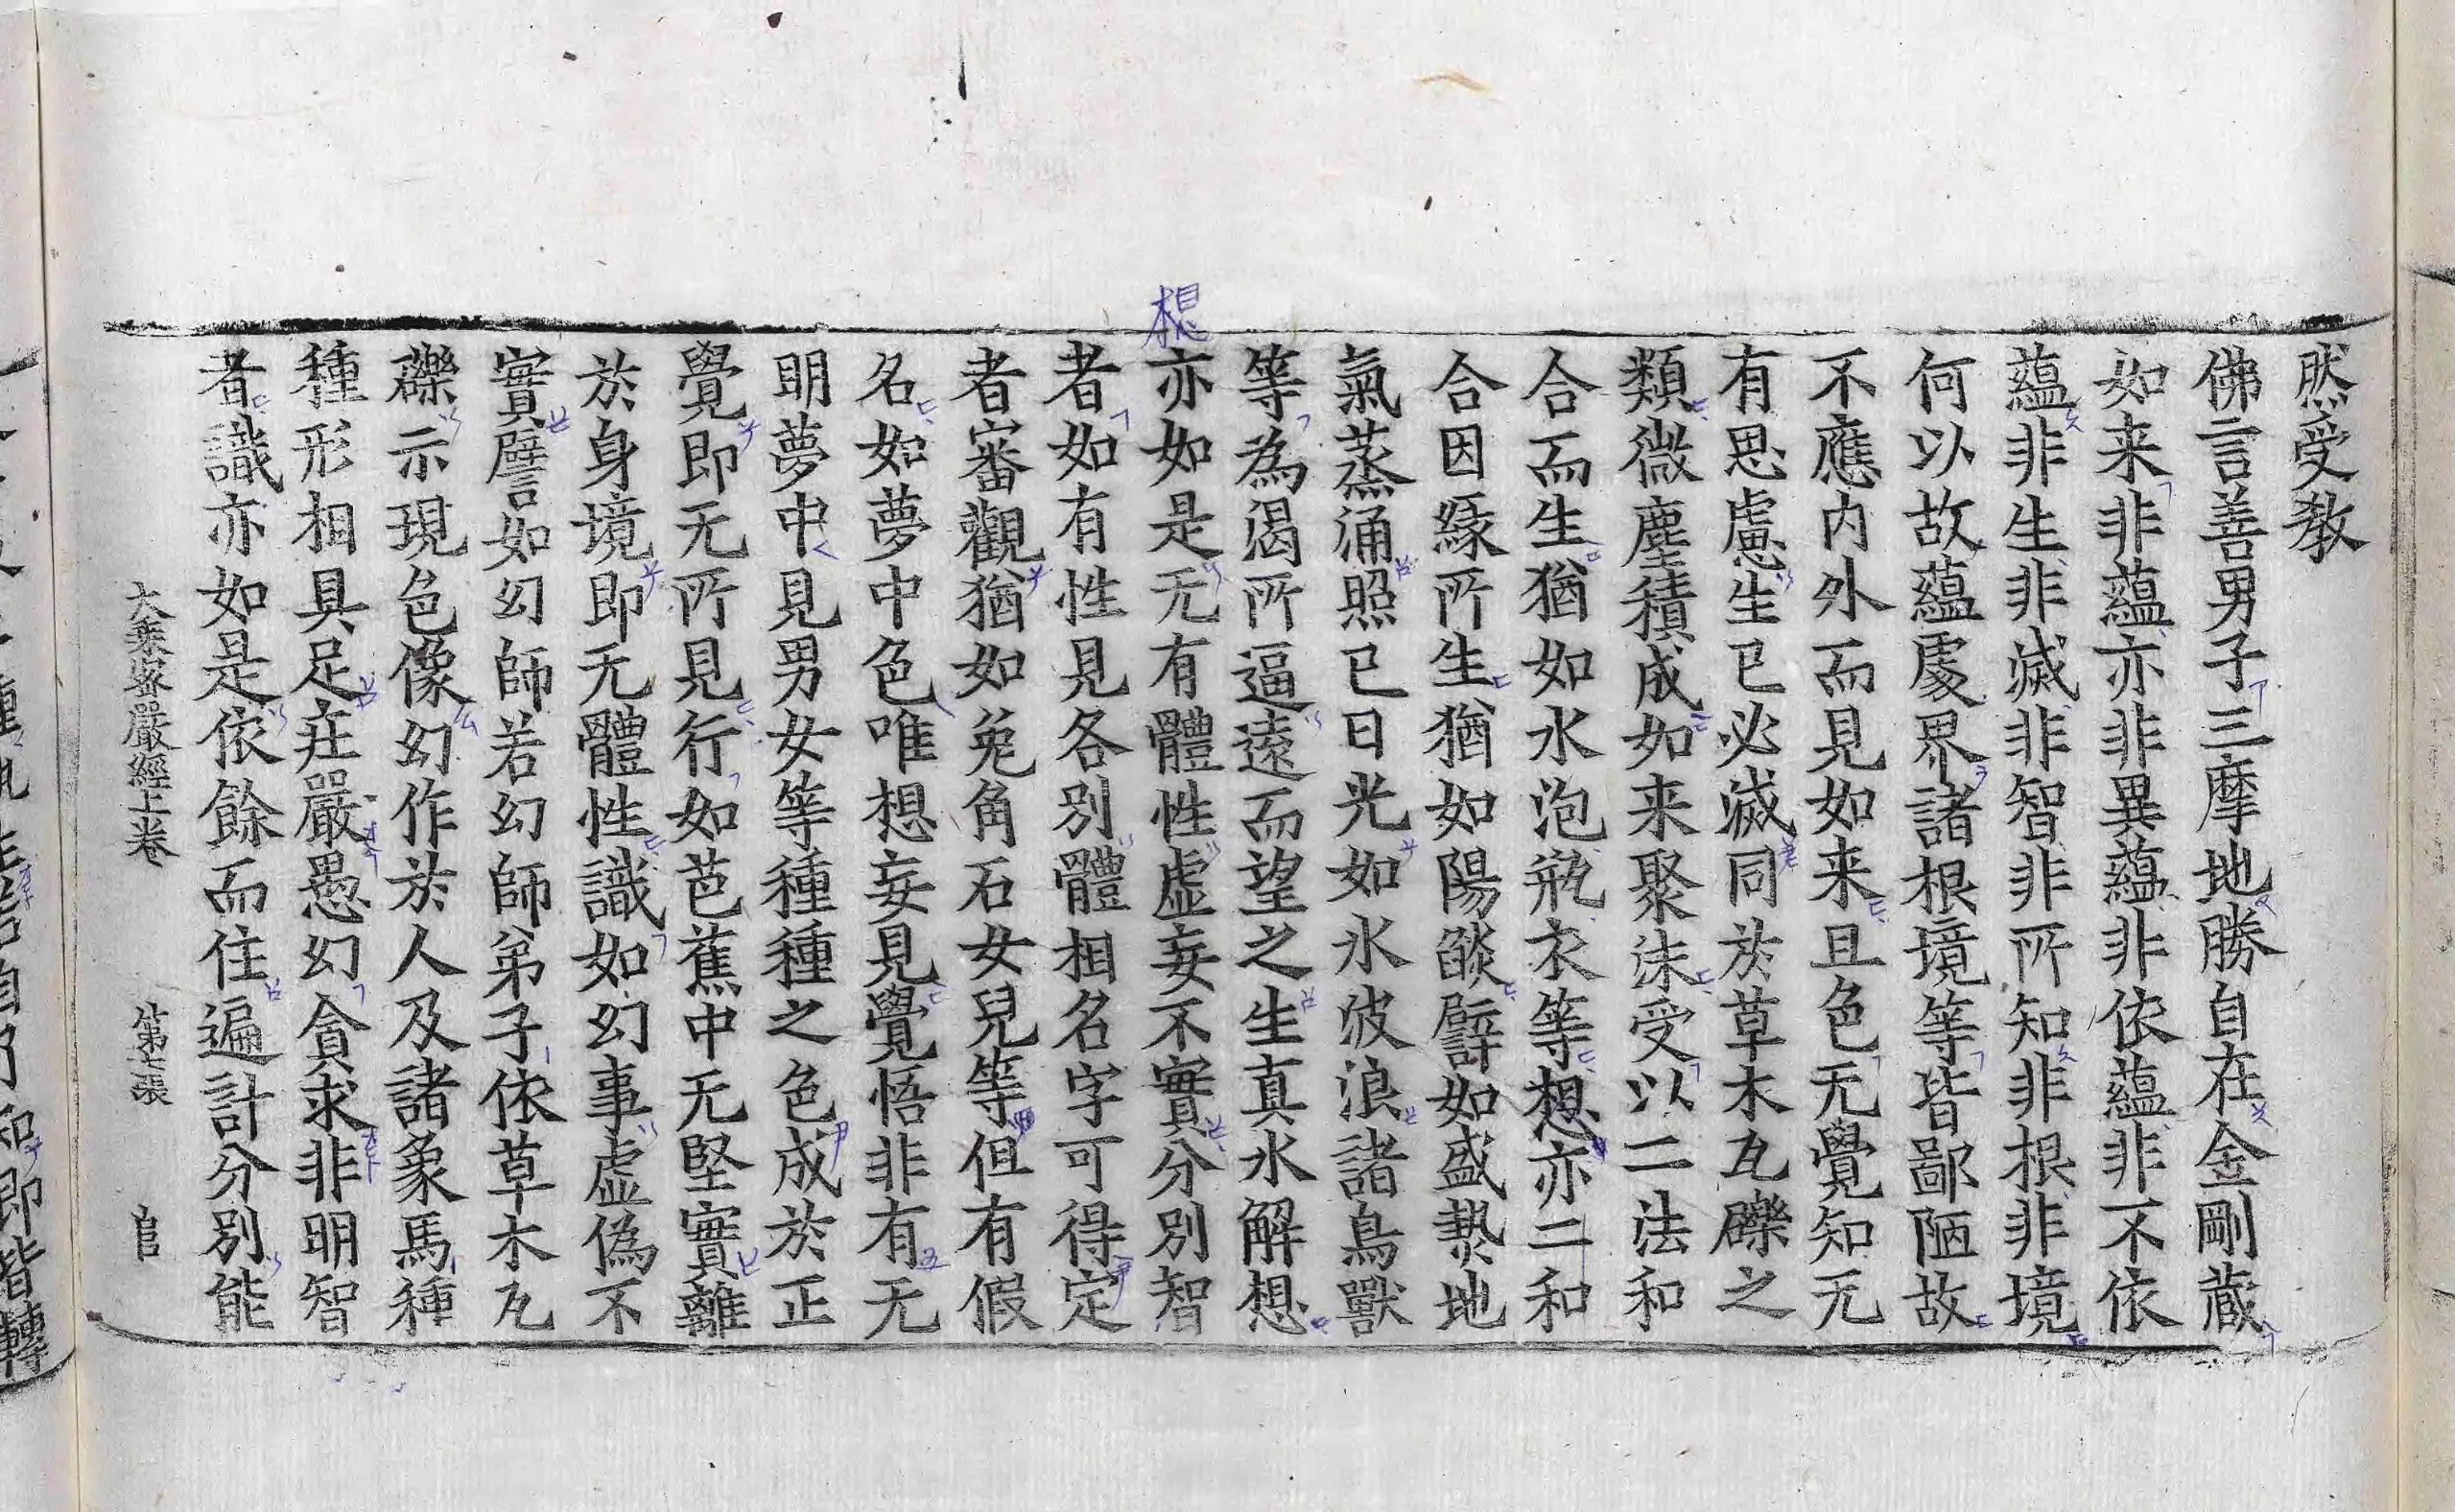 想
然受教
佛言善男子三摩地勝自在金剛蔵
如来非蘊亦非異蘊非依蘊非不依
蘊非生非滅非智非所知非根非境
何以故蘊處界諸根境等皆鄙陋故
不應内外而見如来且色无覺知无
有思慮生已必滅同於草木瓦礫之
類微塵積成如来聚沫受以二法和
合而生猶如水泡瓶衣等想亦二和
合因緣所生猶如陽燄譬如盛熱地
氣蒸涌照已日光如水波浪諸鳥獸
等為渴所逼遠而望之生真水解想
亦如是无有體性虛妄不實分別智
者如有性見各別體相名字可得定
者審觀猶如兎角石女兒等但有假
名如夢中色唯想妄見覺悟非有无
明夢中見男女等種種之色成於正
覺即无所見行如芭蕉中无堅實離
於身境即无體性識如幻事虛偽不
實譬如幻師若幻師弟子依草木瓦
礫示現色像幻作於人及諸象馬種
種形相具足莊嚴愚幻貪求非明智
者識亦如是依餘而住遍計分別能
大乘密嚴經上卷 第七張